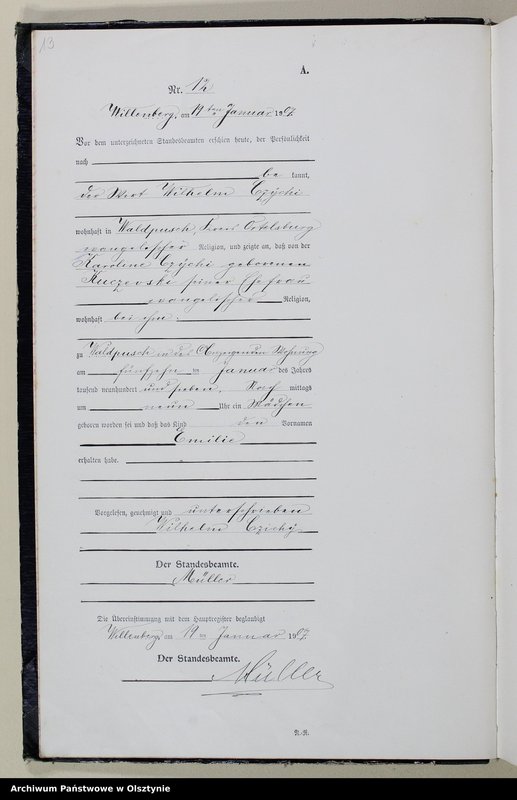 13
A.
Nr. 12
Willenberg, am 19ten Januar 1907.
Vor dem unterzeichneten Standesbeamten erschien heute, der Persönlichkeit
nach
be kannt,
der Wirt Wilhelm Czychi
wohnhaft in Waldpusch, Kreis Ortelsburg
evangelischer Religion, und zeigte an, daß von der
Karoline Czychi geborenen
Kuczewski seiner Ehefrau
evangelischer Religion,
wohnhaft bei ihm
zu Waldpusch in des Anzeigenden Wohnung
am fünfzehn ten Januar des Jahres
tausend neunhundert und sieben, Nach mittags
um neun Uhr ein Mädchen
geboren worden sei und daß das Kind den Vornamen
Emilie
erhalten habe.
Vorgelesen, genehmigt und unterschrieben
Wilhelm Czichy
Der Standesbeamte.
Müller
Die Übereinstimmung mit dem Hauptregister beglaubigt
Willenberg, am 19ten Januar 1907.
Der Standesbeamte.
Müller
N.-R.
Archiwum Państwowe w Olsztynie